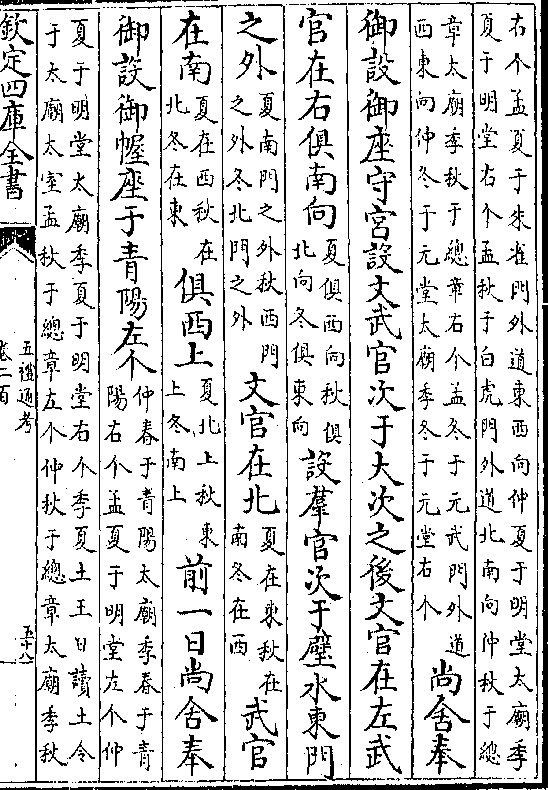 右个孟夏于朱雀門外道東西向仲夏于明堂太廟季
夏于明堂右个孟秋于白虎門外道北南向仲秋于總
章太廟季秋于總章右个孟冬于元武門外道
西東向仲冬于元堂太廟季冬于元堂右个
尚舍奉
御設御座守宮設文武官次于大次之後文官在左武
官在右俱南向
夏俱西向秋俱
北向冬俱東向
設羣官次于璧水東門
之外
夏南門之外秋西門
之外冬北門之外
文官在北
夏在東秋在
南冬在西
武官
在南
夏在西秋在
北冬在東
俱西上
夏北上秋東
上冬南上
前一日尚舍奉
御設御幄座于青陽左个
仲春于青陽太廟季春于青
陽右个孟夏于明堂左个仲
夏于明堂太廟季夏于明堂右个季夏土王日讀土令
于太廟太室孟秋于總章左个仲秋于總章太廟季秋
欽定四庫全書
五禮通考
卷二百
五十八